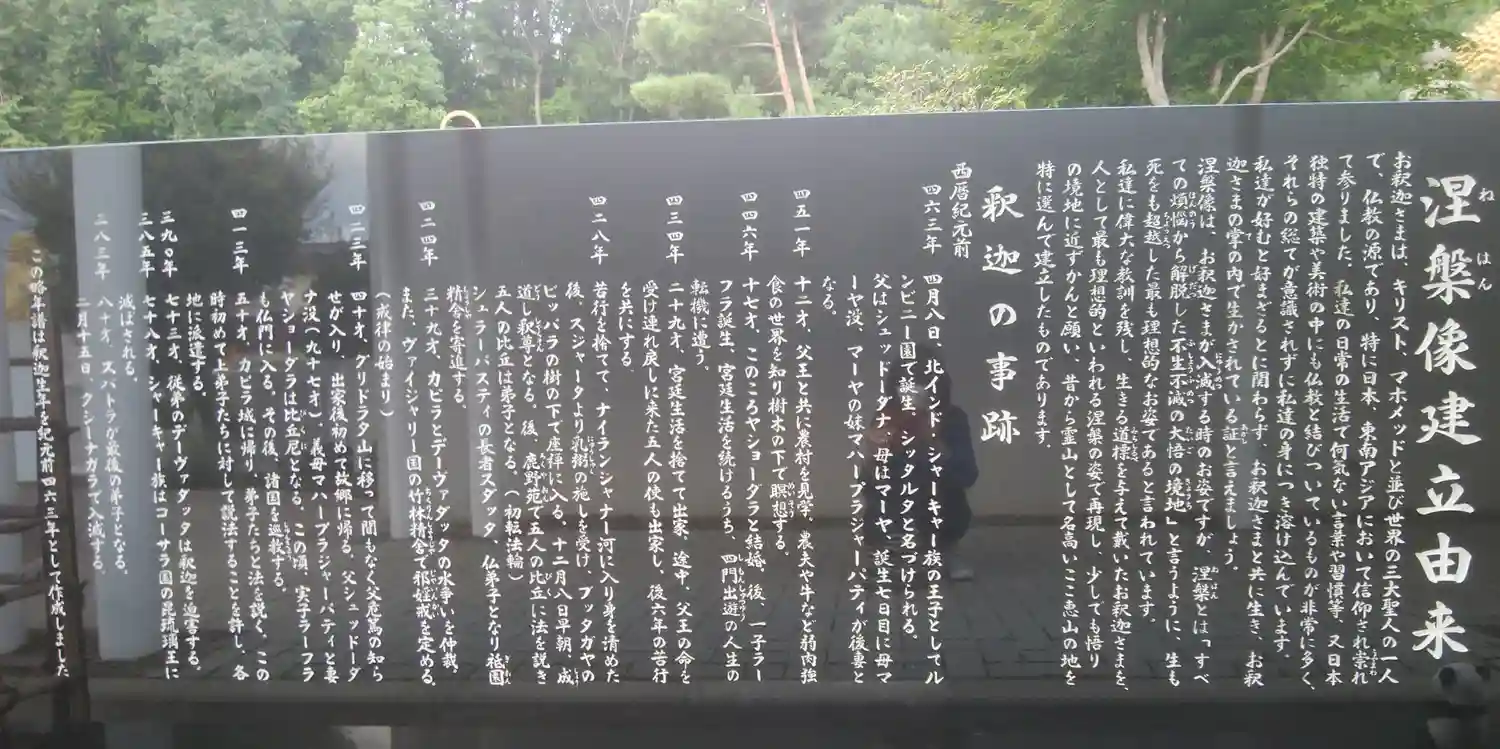 涅槃像建立由来
お釈迦さまは、キリスト、マホメッドと並び世界の三大聖人の一人
で、仏教の源であり、特に日本、東南アジアにおいて信仰され崇れ
て参りました。私達の日常の生活で何気ない言葉や習慣等、又日本
独特の建築や美術の中にも仏教と結びついているものが非常に多く、
それらの総てが意識されずに私達の身につき溶け込んでいます。
私達が好むと好まざるとに関わらず、お釈迦さまと共に生き、お釈
迦さまの掌の内で生かされている証と言えましょう。
涅槃像は、お釈迦さまが入滅する時のお姿ですが、涅槃とは「すべ
ての煩悩から解脱した不生不滅の大悟の境地」と言うように、生も
死をも超越した最も理想的なお姿であると言われています。
私達に偉大な教訓を残し、生きる道標を与えて戴いたお釈迦さまを、
人として最も理想的といわれる涅槃の姿で再現し、少しでも悟り
の境地に近ずかんと願い、昔から霊山として名高いここ恵山の地を
特に選んで建立したものであります。
釈迦の事跡
西暦紀元前
四六三年 四月八日、北インド・シャーキャー族の王子としてル
ンビニー園で誕生、シッタルタと名づけられる。
父はシュッドーダナ、母はマーヤ、誕生七日目に母マ
ーヤ没、マーヤの妹マハープラジャーパティが後妻と
なる。
四五一年 十二才、父王と共に農村を見学。農夫や牛など弱肉強
食の世界を知り樹木の下で瞑想する。
四四六年 十七才、このころヤショーダラと結婚、後、一子ラー
フラ誕生、宮廷生活を続けるうち、四門出遊の人生の
転機に遭う。
四三四年 二十九才、宮廷生活を捨てて出家、途中、父王の命を
受け連れ戻しに来た五人の使も出家し、後六年の苦行
を共にする。
四二八年 苦行を捨てて、ナイランジャナー河に入り身を清めた
後、スジャータより乳粥の施しを受け、ブッタガヤの
ピッパラの樹の下で座禅に入る。十二月八日早朝、成
道し釈尊となる。後、鹿野苑で五人の比丘に法を説き
五人の比丘は弟子となる。(初転法輪)
シュラーバスティの長者スダッタ、仏弟子となり祗園
精舎を寄進する。
四二四年 三十九才、カピラとデーヴァダッタの水争いを仲裁。
また、ヴァイシャリー国の竹林精舎で邪婬戒を定める。
(戒律の始まり)
四二三年 四十才、グリドラクタ山に移って間もなく父危篤の知ら
せが入り、出家後初めて故郷に帰る。父シュッドーダ
ナ没(九十七才)、義母マハープラジャーパティと妻
ヤショーダラは比丘尼となる。この頃、実子ラーフラ
も仏門に入る。その後、諸国を巡教する。
四一三年 五十才、カピラ城に帰り、弟子たちと法を説く、この
時初めて上弟子たちに対して説法することを許し、各
地に派遣する。
三九〇年 七十三才、従弟のデーヴァダッタは釈迦を迫害する。
三八五年 七十八才、シャーキャー族はコーサラ国の毘琉璃王に
滅ばされる。
三八三年 八十才、スバトラが最後の弟子となる。
二月十五日、クシーナガラで入滅する。
この略年譜は釈迦生年を紀元前四六三年として作成しました